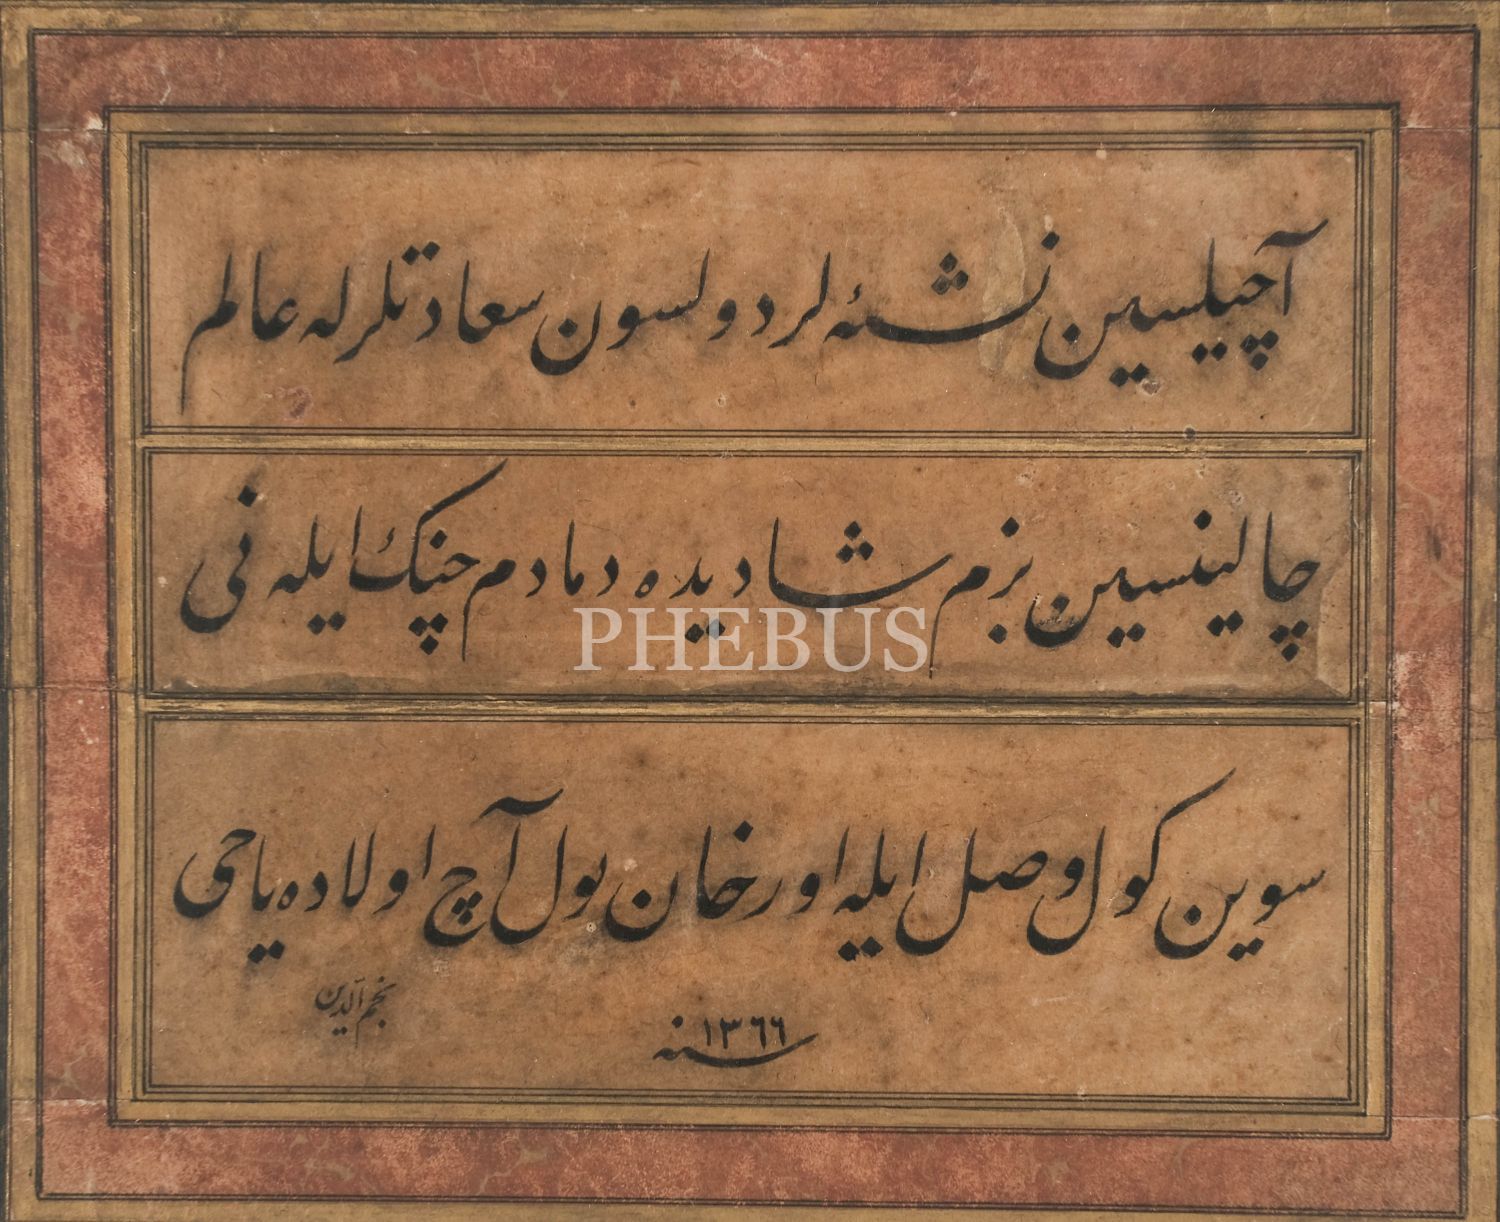 آچیلسین نشئه لردولسون سعادتلرله عالم
چالینسین بزم شادیده دمادم چنك ایله نی
PHEBUS
سوین كول وصل ایله اورخان یول آچ اولاده یاحی
نجم الدین
سنه ١٣٦٦